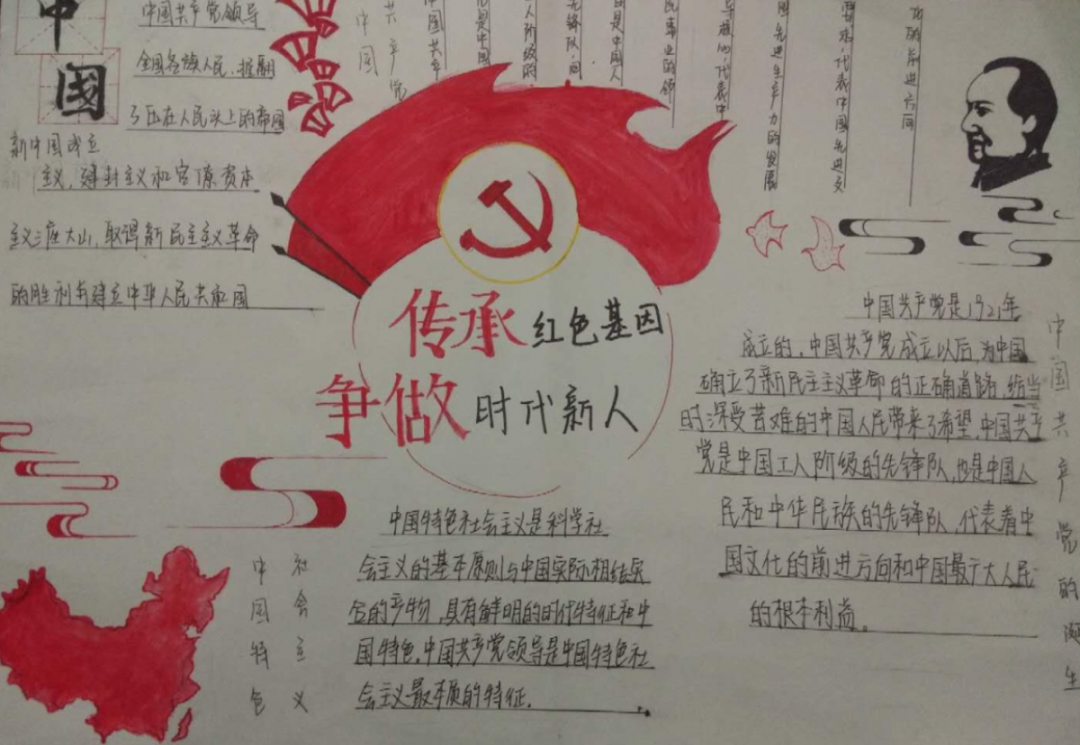 中
国
新中国成立
中国共产党领导
全国各族人民，推翻
了压在人民头上的帝国
主义，封建主义和官僚资本
主义三座大山，取得新民主主义革命
的胜利并建立中华人民共和国
中国
共产党
先进生产力的发展
代表中国先进文
的前进方向
传承红色基因
争做时代新人
中国共产党是1921年
成立的，中国共产党成立以后，为中国
确立了新民主主义革命的正确道路，给当
时深受苦难的中国人民带来了希望，中国共产
党是中国工人阶级的先锋队，也是中国人
民和中华民族的先锋队，代表着中
国文化的前进方向和中国最广大人民
的根本利益。
中国共产党的诞生
中国特色
社会主义
中国特色社会主义是科学社
会主义的基本原则与中国实际相结
合的产物，具有鲜明的时代特征和中
国特色，中国共产党领导是中国特色社
会主义最本质的特征。